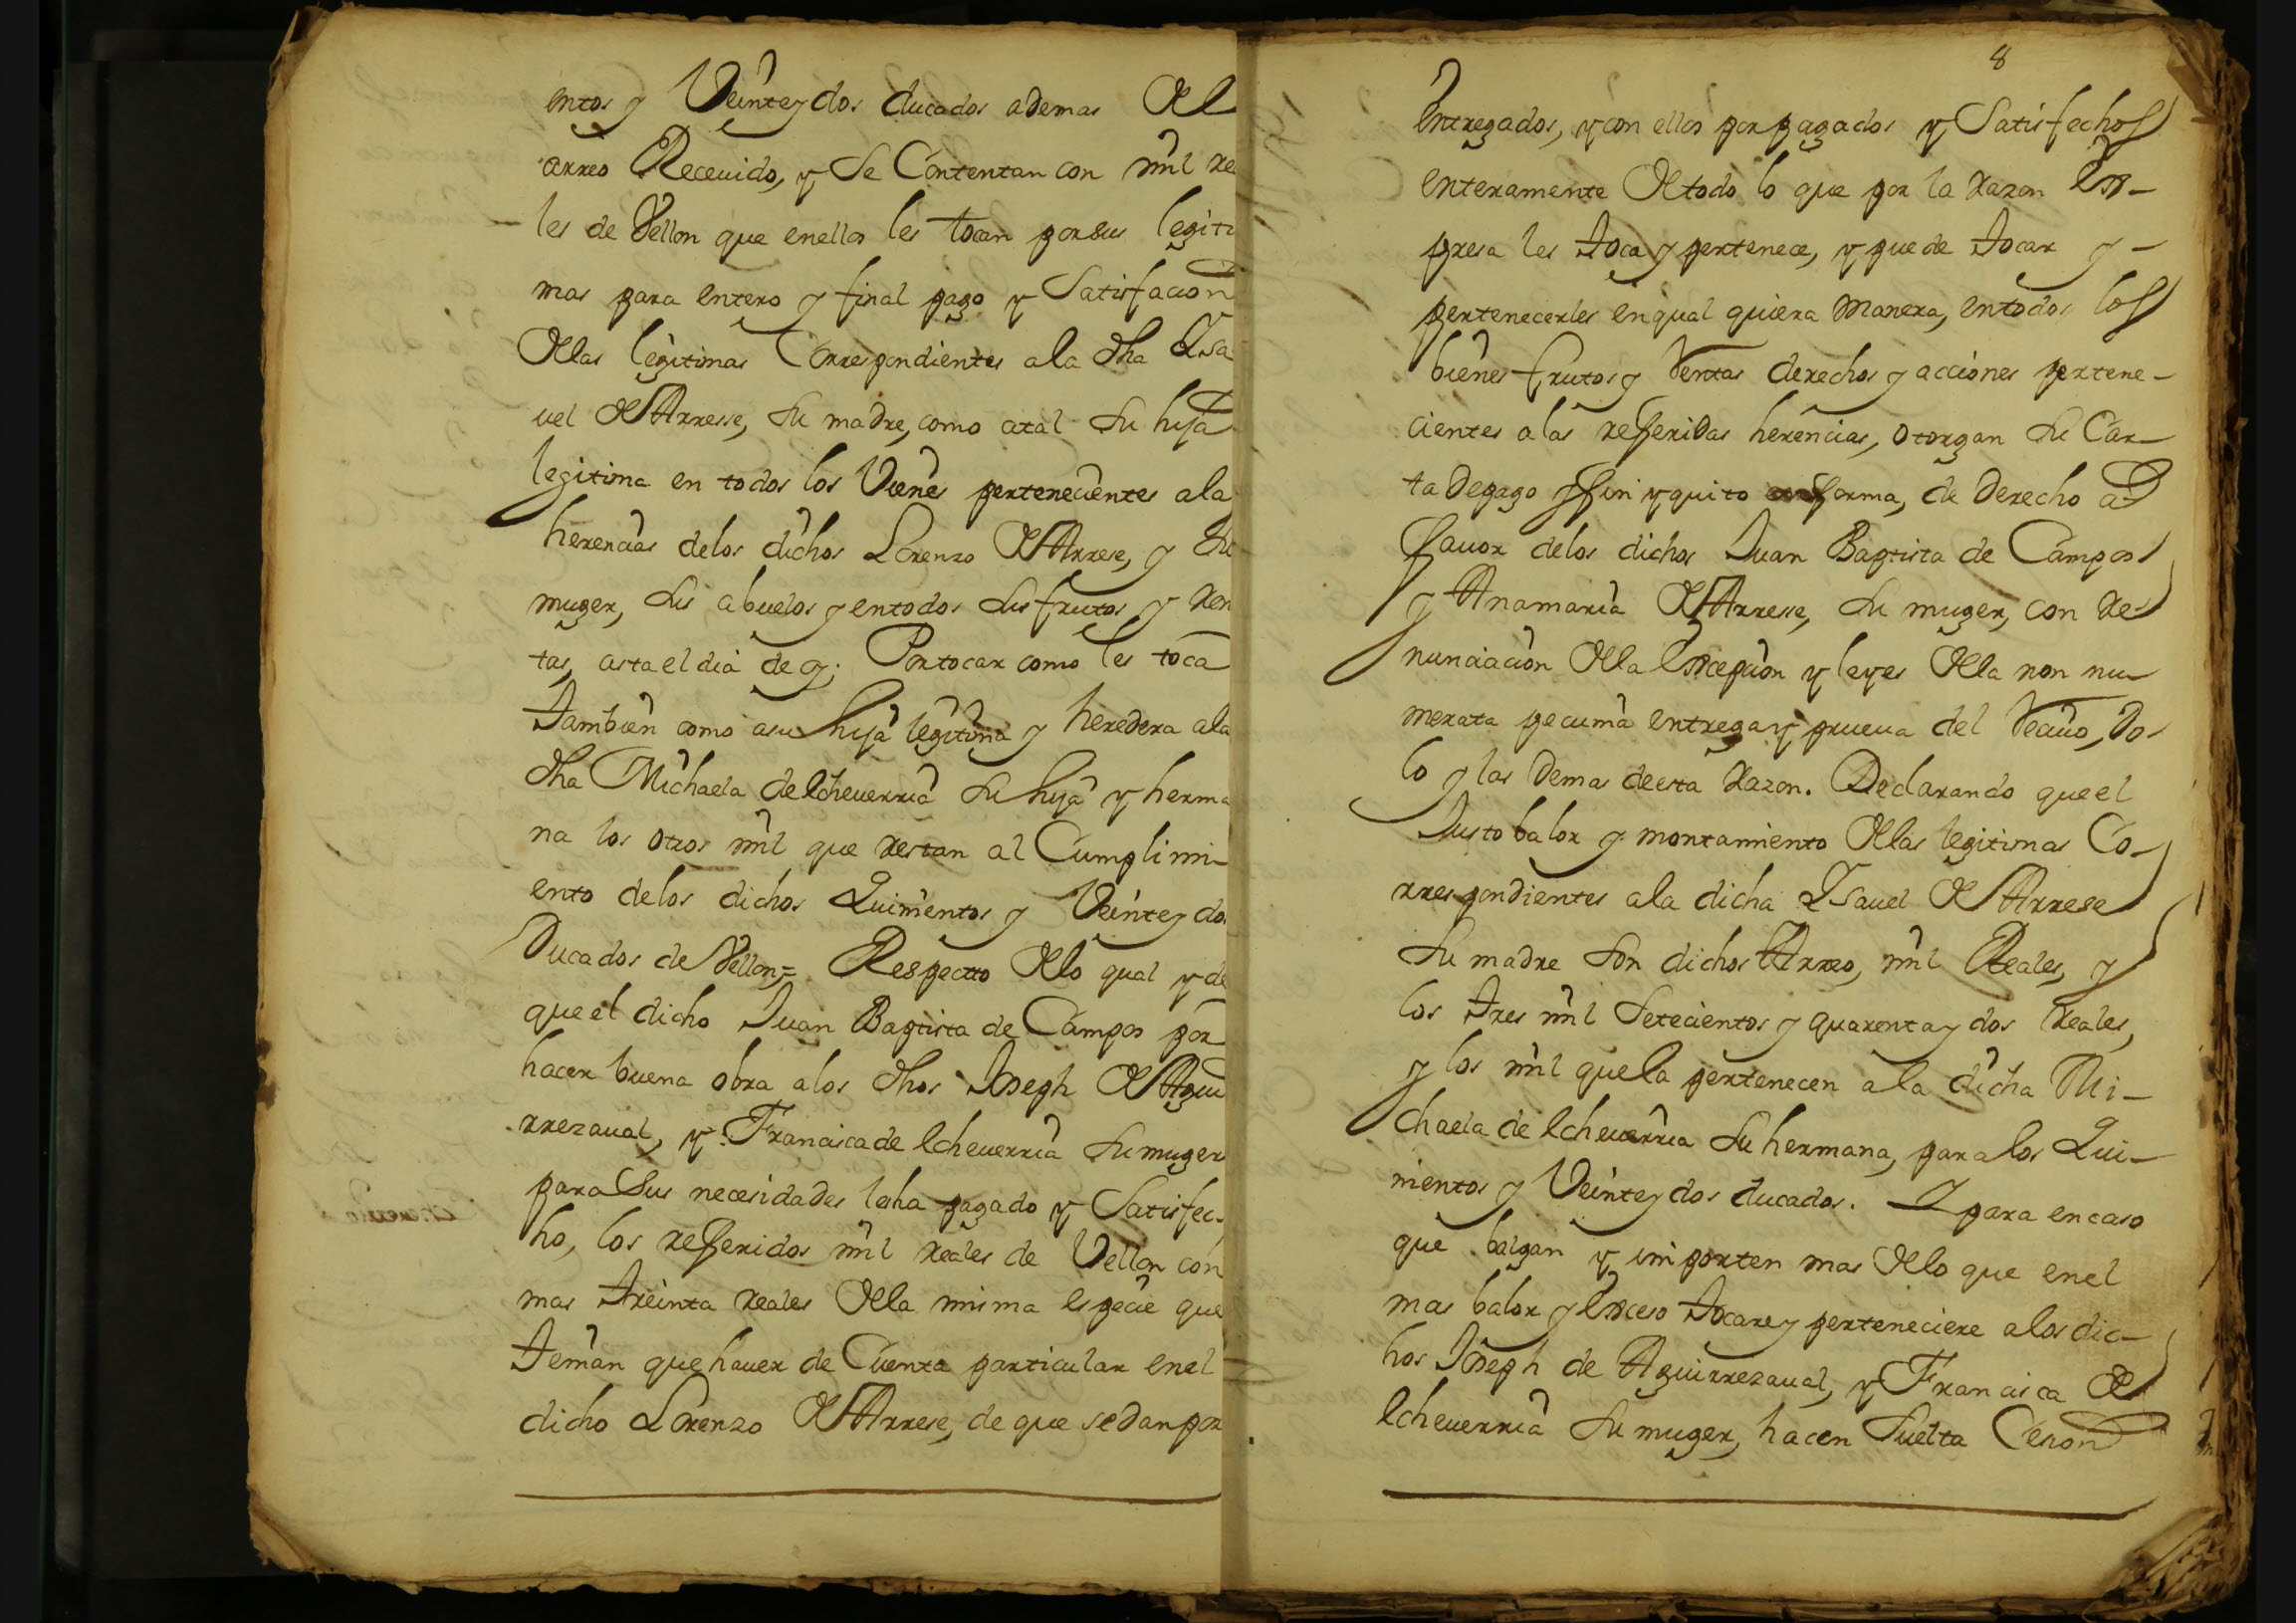 entos y Veinte y dos ducados ademas del
arreo Receuido, y Se Contentan con mil rea
les de Vellon que enellos les tocan por sus legiti
mas para entero y final pago y Satisfacion
delas legitimas Correspondientes ala dha Ysa
uel de Arresse, Su madre, como atal Su hija
legitima en todos los Vienes pertenecientes ala
herencias delos dichos Lorenzo de Arrese, y Su
muger, Sus abuelos y entodos Sus frutos y Ren
tas, asta el dia de oy. Por tocar como les toca
Tambien como asu hija legitima y heredera ala
dha Michaela de Echeuerria Su hija y herma
na los otros mil que restan al Cumplimi-
ento delos dichos Quinientos y Veinte y dos
Ducados de Vellon, = Respecto delo qual y de
que el dicho Juan Baptista de Campos por
hacer buena obra alos dhos Joseph de Agui
rrezaual, y Francisca de Echeuerria Su muger
para Sus necesidades les ha pagado y Satisfec-
ho, los refferidos mil reales de Vellon con
mas Treinta reales dela misma especie que
Tenian que hauer de Cuenta particular enel
dicho Lorenzo de Arrese, de que se dan por
8
Entregados, y con ellos por pagados y Satisfechos
enteramente de todo lo que por la razon Ex-
presa les Toca y pertenece, y puede Tocar y -
pertenecerles en qual quiera Manera, entodos los
bienes frutos y Rentas derechos y acciones pertene-
cientes alas refferidas herencias, otorgan Su Car-
ta de pago y ffin y quito en fforma, de Derecho a
ffauor delos dichos Juan Baptista de Campos
y Anamaria de Arrese, Su muger, con Re-
nunciacion dela Excepcion y leyes dela non nu-
merata pecunia entrega y prueua del Reciuo, Do-
lo y las Demas de esta Razon. Declarando que el
Justo balor y montamiento delas legitimas Co-
rrespondientes ala dicha Ysauel de Arrese
Su madre Son dichos Arreo, mil Reales, y
los Tres mil Setecientos y quarenta y dos Reales,
y los mil que la pertenecen ala dicha Mi-
chaela de Echeuerria Su hermana, para los Qui-
nientos y Veinte y dos ducados. Y para en caso
que balgan y importen mas delo que enel
mas balor y Exceso Tocare y perteneciere alos dic-
hos Joseph de Aguirrezaual, y Francisca de
Echeuerria Su muger, hacen Suelta Cesion